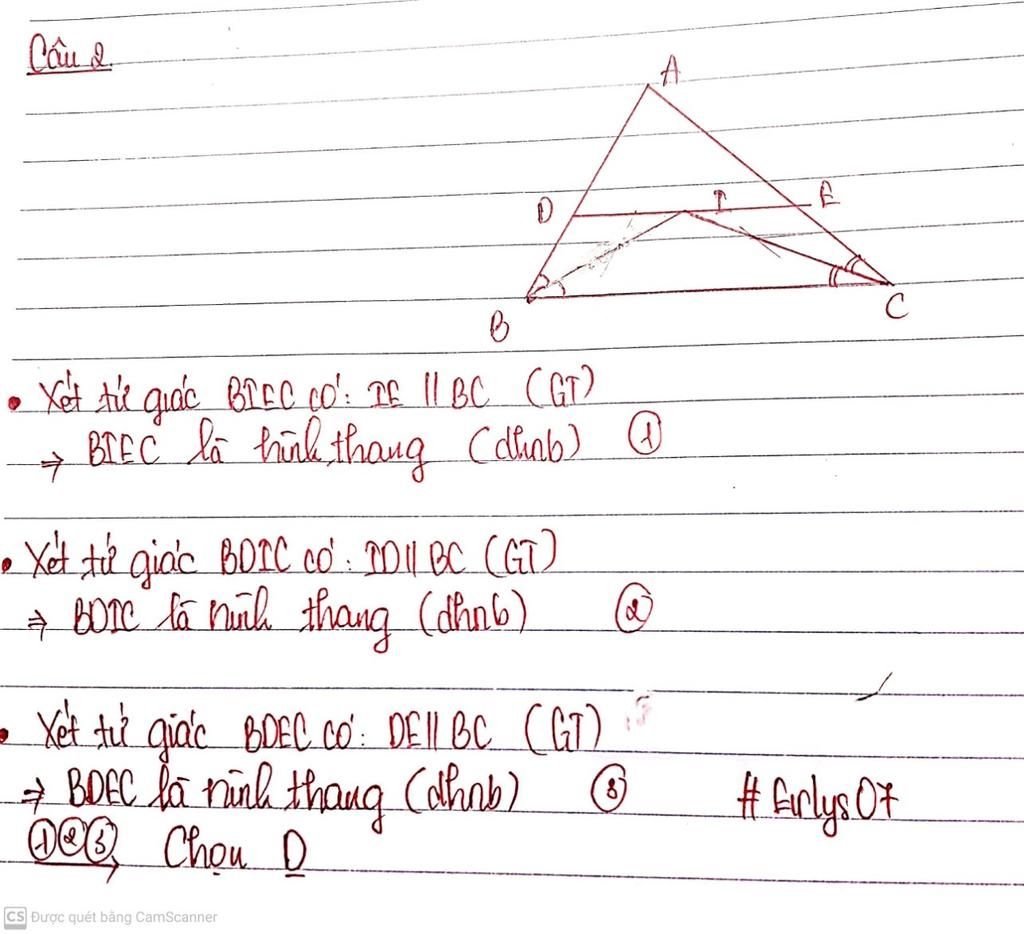 Câu 2.
A
D
I
E
B
C
• Xét tứ giác BIEC có: IE // BC (GT)
⇒ BIEC là hình thang (dhnb) ①
• Xét tứ giác BDIC có: ID // BC (GT)
⇒ BDIC là hình thang (dhnb) ②
• Xét tứ giác BDEC có: DE // BC (GT)
⇒ BDEC là hình thang (dhnb) ③
# Eirlys07
①②③ Chọn D
CS Được quét bằng CamScanner